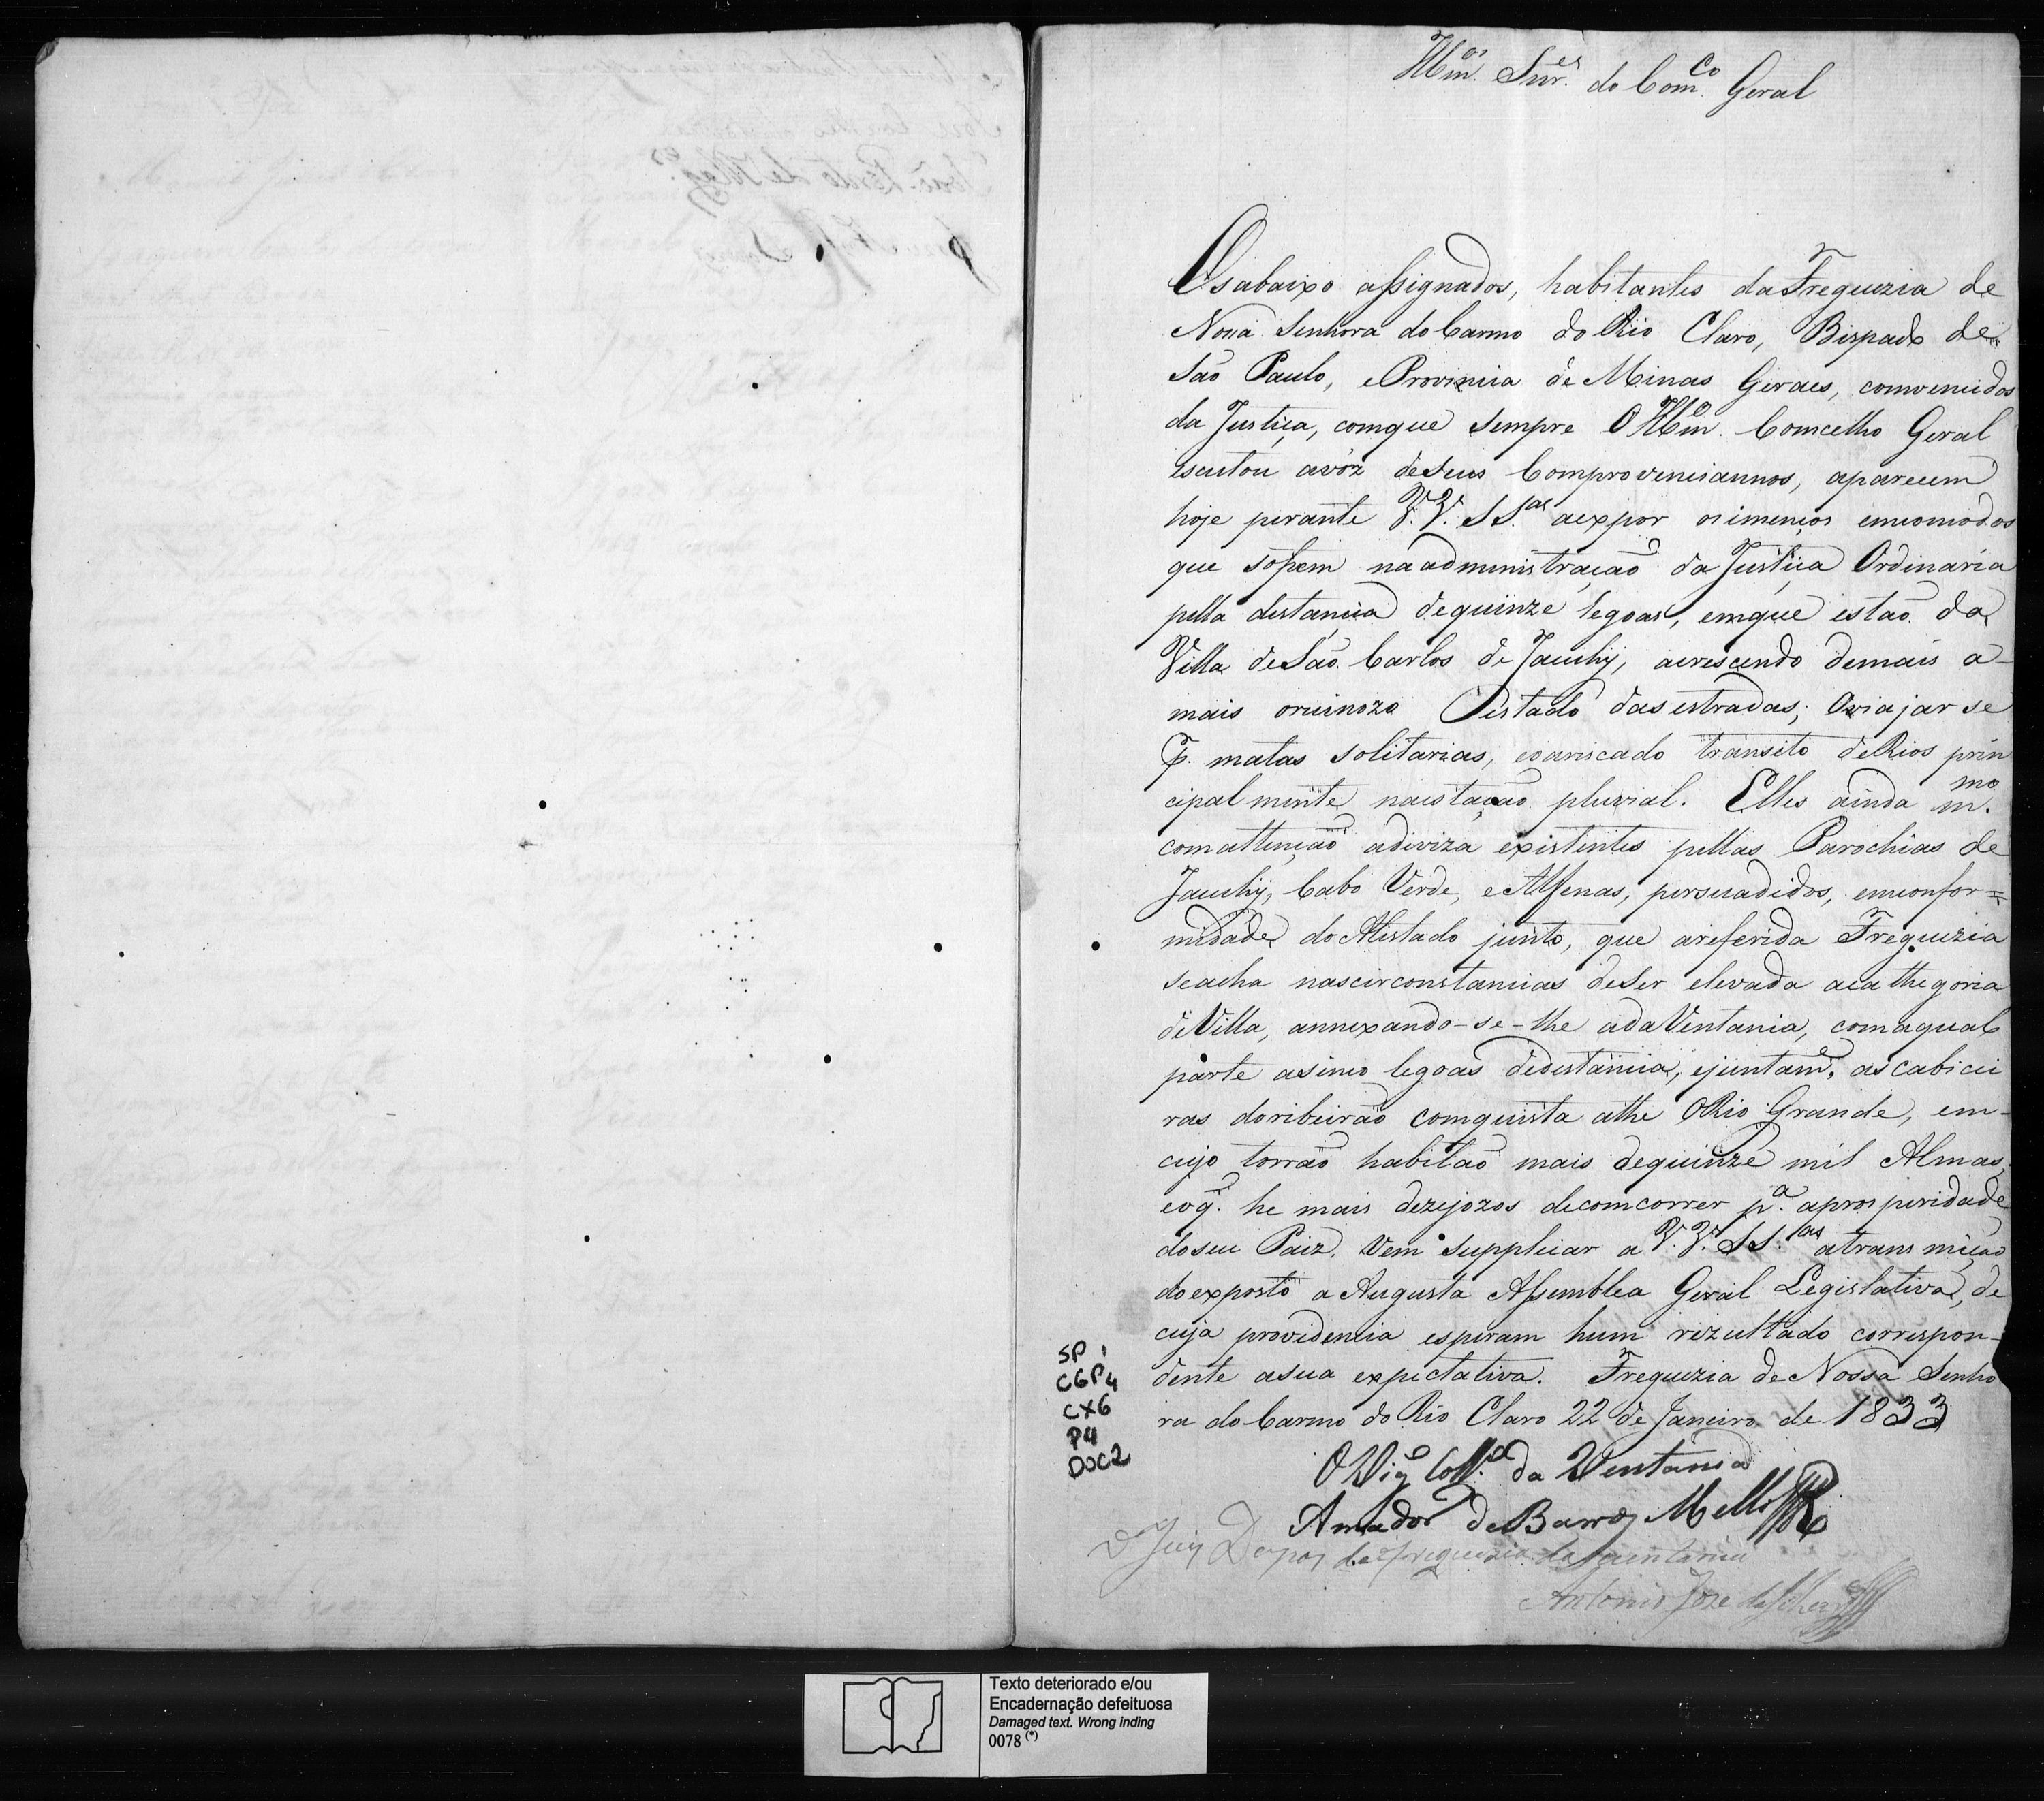 Illm.os Snr.es do Com.co Geral
Osabaixo assignados, habitantes da Freguezia de
Nosa Senhora do Carmo do Rio Claro, Bispado de
São Paulo, e Provincia de Minas Geraes, comvencidos
da Justiça, comque sempre O Illm.o Comcelho Geral
escutou avóz deseus Comprovenciannos, aparecem
hoje perante V.V. SS.as aexpor os imenços emcomodos
que sofrem na administração da Justiça Ordinaria
pella destancia dequinze legoas, emque estão da
Villa de São Carlos de Jacuhÿ, acrescendo demais a-
mais oruinozo Oestado das estradas; Oviajar se
p.r matas solitarias, eoariscado transito de Rios prin
cipalmente naestação pluvial. Elles ainda m.mo
comattenção adiviza existentes pellas Parochias de
Jacuhÿ, Cabo Verde, e Alfenas, persuadidos, emconfor=
midade do Alistado junto, que areferida Freguizia
seacha nascirconstancias deser elevada acathegoria
de Villa, annexando-se-lhe ada Ventania, comaqual
parte asinco legoas dedistancia, ejuntam.e as cabicei
ras doribeirão comquista athe O Rio Grande, em-
cujo torrão habitão mais dequinze mil Almas,
eoq. he mais dezejozos decomcorrer p.a aprosperidade
doseu Paiz. Vem suppliciar a V.V. SS.as atransmição
doexposto a Augusta Assemblea Geral Legislativa, de
cuja providencia esperam hum rezultado correspon-
dente asua expectativa. Freguezia de Nossa Senho
ra do Carmo do Rio Claro 22 de Janeiro de 1833
O Vig.o Coll.do da Ventania
Amador de Barros Mello
O Juiz De pas da freguezia da ventania
Antonio Joze da Silva
SP 1
CGP4
CX6
P4
DOC2
Texto deteriorado e/ou
Encadernação defeituosa
Damaged text. Wrong inding
0078 (*)